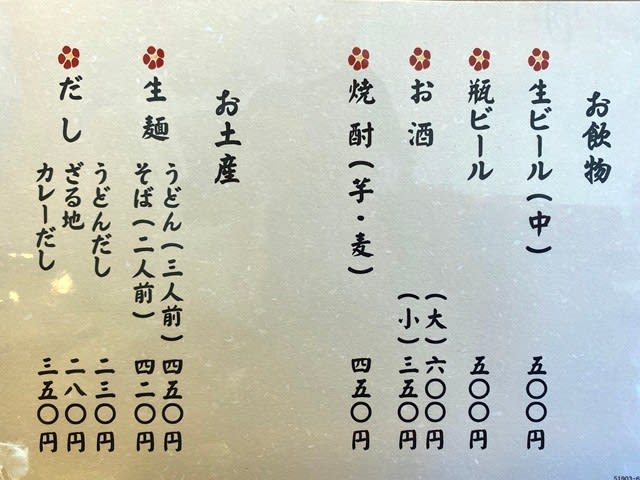 お飲物
生ビール(中) 五〇〇円
瓶ビール 五〇〇円
お酒 (大)六〇〇円
(小)三五〇円
焼酎(芋・麦) 四五〇円
お土産
生麺 うどん(三人前) 四五〇円
そば(二人前) 四二〇円
だし うどんだし 二三〇円
ざる地 二八〇円
カレーだし 三五〇円